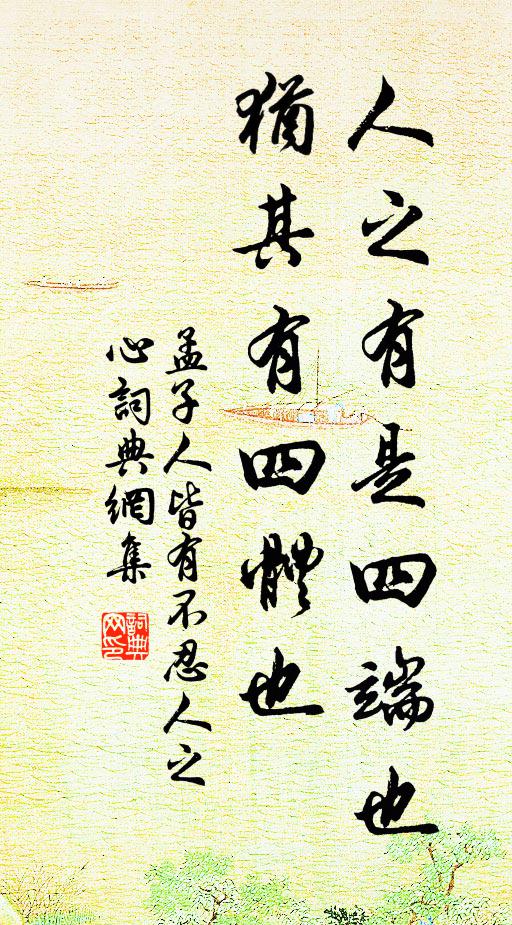 人之有是四端也
猶其有四體也
孟子人皆有不忍人之
心詞典網集
詞典
网印